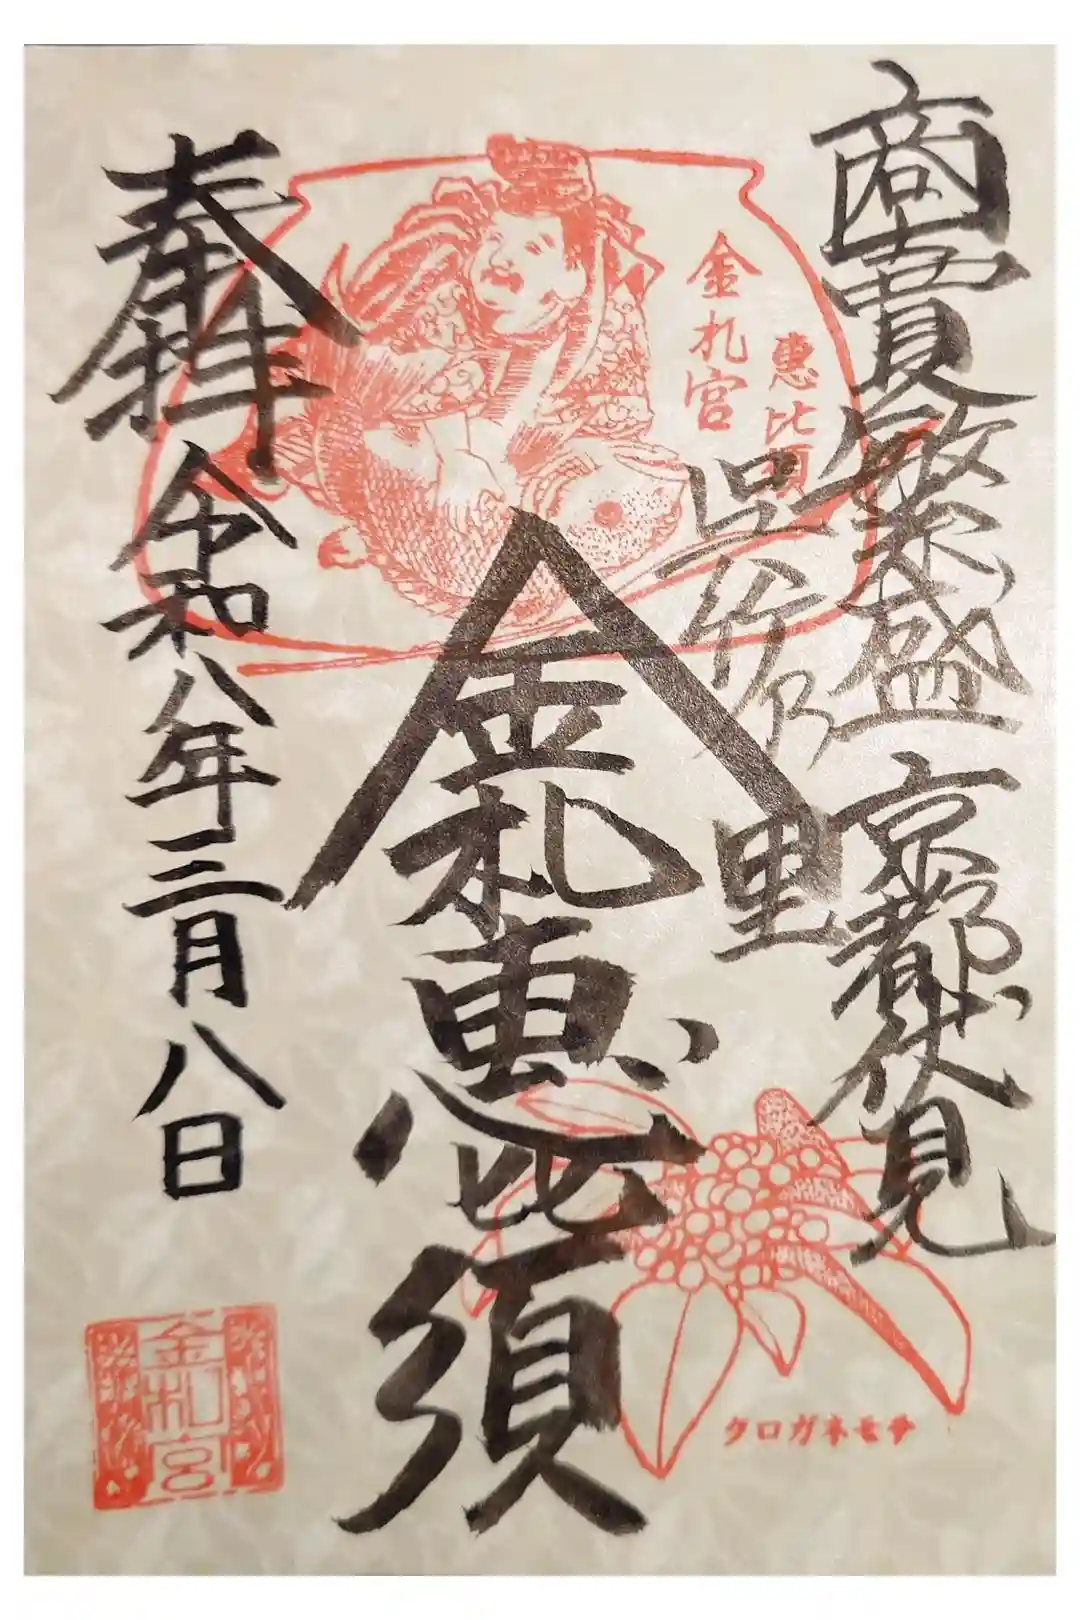 商賣繁盛 京都伏見
呉竹乃里
惠比須
金札宮
金札恵比須
クロガネモチ
奉拜
令和八年三月八日
金札宮